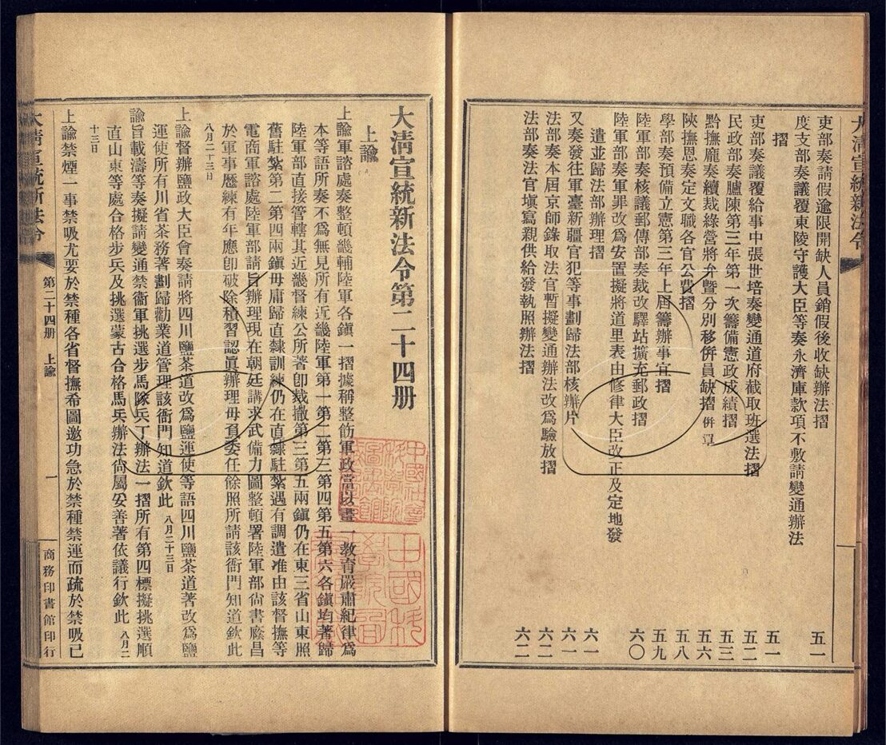 大清宣統新法令
吏部奏請假逾限開缺人員銷假後收缺辦法摺 五一
度支部奏議覆東陵守護大臣等奏永濟庫款項不敷請變通辦法
摺 五一
吏部奏議覆給事中張世培奏變通道府截取班選法摺 五二
民政部奏臚陳第三年第一次籌備憲政成績摺 五三
黔撫龐奏續裁綠營將弁暨分別移併員缺摺 併單 五六
陝撫恩奏定文職各官公費摺 五八
學部奏預備立憲第三年上屆籌辦事宜摺 五九
陸軍部奏核議郵傳部奏裁改驛站擴充郵政摺 六〇
陸軍部奏軍罪改爲安置擬將道里表由修律大臣改正及定地發
遣並歸法部辦理摺 六一
又奏發往軍臺新疆官犯等事劃歸法部核辦片 六一
法部奏本屆京師錄取法官暫擬變通辦法改爲驗放摺 六二
法部奏法官塡寫親供給發執照辦法摺 六二
大淸宣統新法令第二十四册
上諭
上諭軍諮處奏整頓畿輔陸軍各鎭一摺據稱整飭軍政當以畫一敎育嚴肅紀律爲
本等語所奏不爲無見所有近畿陸軍第一第二第三第四第五第六各鎭均著歸
陸軍部直接管轄其近畿督練公所著卽裁撤第三第五兩鎭仍在東三省山東照
舊駐紮第二第四兩鎭毋庸歸直隸訓練仍在直隸駐紮遇有調遣准由該督撫等
電商軍諮處陸軍部請旨辦理現在朝廷講求武備力圖整頓署陸軍部尙書廕昌
於軍事歷練有年應卽破除積習認眞辦理毋負委任餘照所請該衙門知道欽此
八月二十三日
上諭督辦鹽政大臣會奏請將四川鹽茶道改爲鹽運使等語四川鹽茶道著改爲鹽
運使所有川省茶務著劃歸勸業道管理該衙門知道欽此 八月二十三日
諭旨載濤等奏擬請變通禁衞軍挑選步馬隊兵丁辦法一摺所有第四標擬挑選順
直山東等處合格步兵及挑選蒙古合格馬兵辦法尙屬妥善著依議行欽此 八月二
十三日
上諭禁煙一事禁吸尤要於禁種各省督撫希圖邀功急於禁種禁運而疏於禁吸已
大淸宣統新法令 第二十四册 上諭 一 商務印書館印行